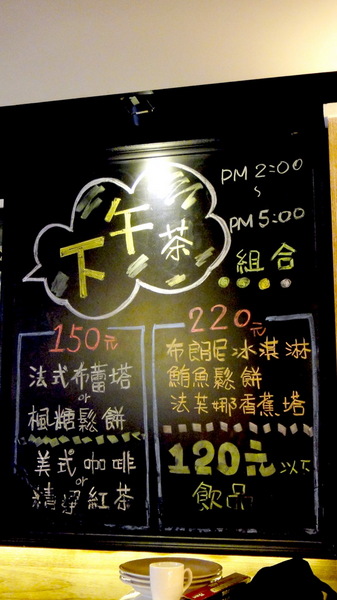 下午茶
PM 2:00
~
PM 5:00
組合
150元
法式布蕾塔
or
楓糖鬆餅
美式咖啡
or
精選紅茶
220元
布朗尼冰淇淋
鮪魚鬆餅
法芙娜香蕉塔
120元以下
飲品